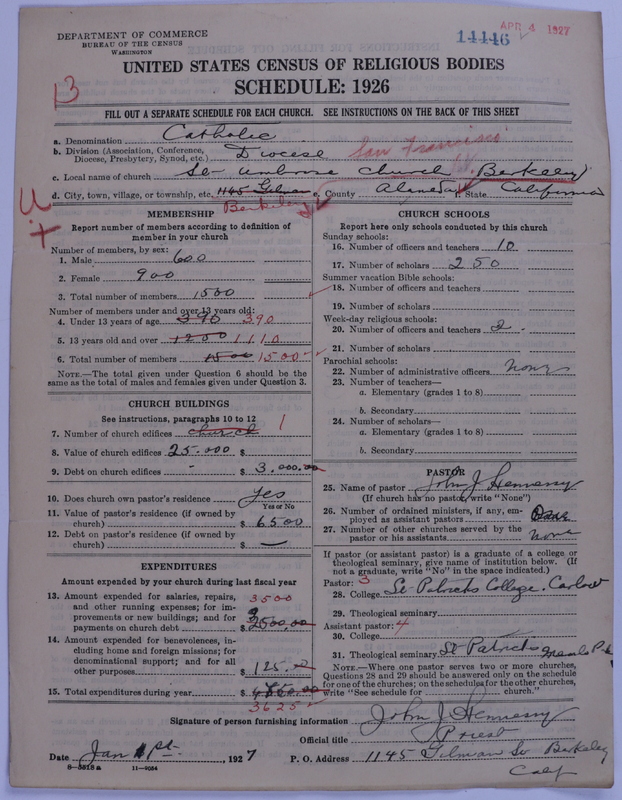 DEPARTMENT OF COMMERCE
BUREAU OF THE CENSUS
WASHINGTON
14446
APR 4 1927
UNITED STATES CENSUS OF RELIGIOUS BODIES
SCHEDULE: 1926
13
FILL OUT A SEPARATE SCHEDULE FOR EACH CHURCH. SEE INSTRUCTIONS ON THE BACK OF THIS SHEET
a. Denomination Catholic
b. Division (Association, Conference, Diocese, Presbytery, Synod, etc.) Diocese San Francisco
c. Local name of church St Ambrose Church Berkeley
d. City, town, village, or township, etc. 1145 Gilman Berkeley e. County Alameda f. State California
MEMBERSHIP
Report number of members according to definition of
member in your church
Number of members, by sex:
1. Male 600
2. Female 900
3. Total number of members 1500
Number of members under and over 13 years old:
4. Under 13 years of age 390 390
5. 13 years old and over 1250 1110
6. Total number of members 1500 1500
NOTE.—The total given under Question 6 should be
the same as the total of males and females given under Question 3.
CHURCH BUILDINGS
See instructions, paragraphs 10 to 12
7. Number of church edifices church 1
8. Value of church edifices 25.000 $
9. Debt on church edifices - $ 3,000.00
10. Does church own pastor's residence Yes
Yes or No
11. Value of pastor's residence (if owned by
church) $ 6500
12. Debt on pastor's residence (if owned by
church) $ —
EXPENDITURES
Amount expended by your church during last fiscal year
13. Amount expended for salaries, repairs, 3500
and other running expenses; for im-
provements or new buildings; and for
payments on church debt $ 2500.00
14. Amount expended for benevolences, in-
cluding home and foreign missions; for
denominational support; and for all
other purposes $ 125.00
15. Total expenditures during year $
3625
CHURCH SCHOOLS
Report here only schools conducted by this church
Sunday schools:
16. Number of officers and teachers 10
17. Number of scholars 250
Summer vacation Bible schools:
18. Number of officers and teachers
19. Number of scholars
Week-day religious schools:
20. Number of officers and teachers 2
21. Number of scholars
Parochial schools:
22. Number of administrative officers none
23. Number of teachers—
a. Elementary (grades 1 to 8)
b. Secondary
24. Number of scholars—
a. Elementary (grades 1 to 8)
b. Secondary
PASTOR
25. Name of pastor John J Hennessy
(If church has no pastor, write "None")
26. Number of ordained ministers, if any, em-
ployed as assistant pastors
27. Number of other churches served by the
pastor or his assistants none
If pastor (or assistant pastor) is a graduate of a college or
theological seminary, give name of institution below. (If
not a graduate, write "No" in the space indicated.)
Pastor: 3
28. College St Patricks College. Carlow
29. Theological seminary
Assistant pastor: 4
30. College
31. Theological seminary St Patricks Menlo Pk
NOTE.—Where one pastor serves two or more churches,
Questions 28 and 29 should be answered only on the schedule
for one of the churches; on the schedules for the other churches,
write "See schedule for church."
Signature of person furnishing information John J. Hennessy
Official title Priest
Date Jan 1st, 1927 P. O. Address 1145 Gilman St Berkeley
Calif
8-5518a 11-9054